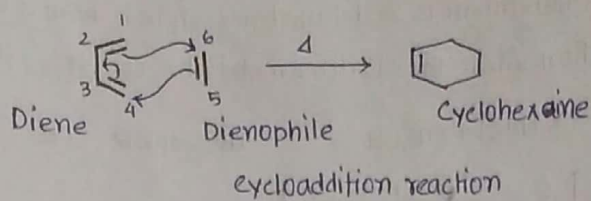 1
2
3
4
6
5
Δ
Diene
Dienophile
Cyclohexaine
cycloaddition reaction